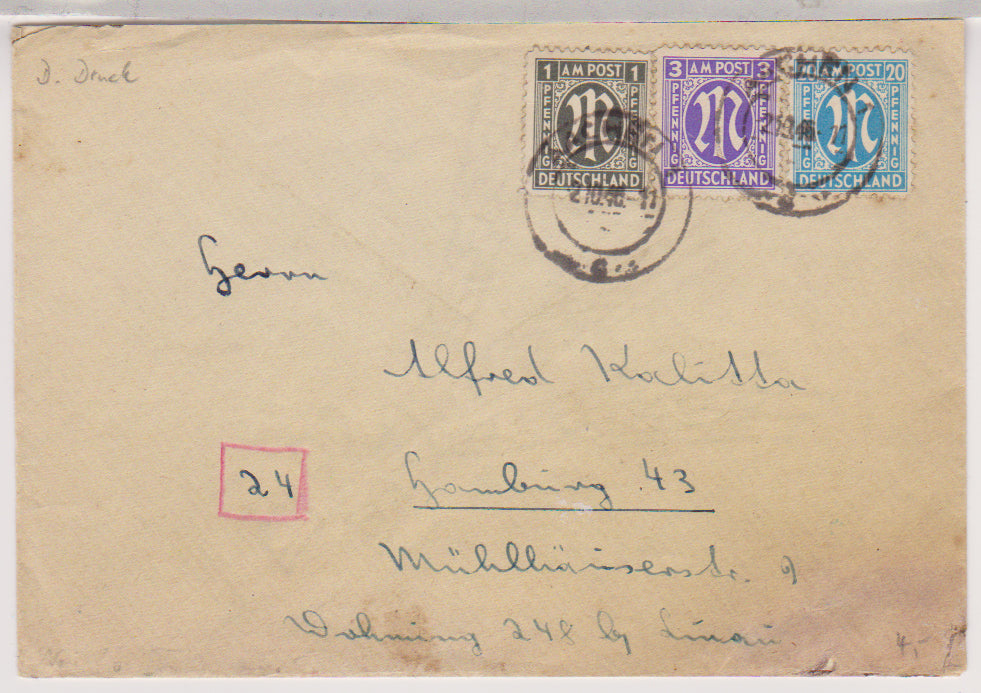 D. Druck
1 AM POST 1
PFENNIG PFENNIG
DEUTSCHLAND
3 AM POST 3
PFENNIG PFENNIG
DEUTSCHLAND
AM POST 20
DEUTSCHLAND
2.10.46.-11
Herrn
Alfred Kalitta
24
Hamburg 43
Mühlhäuserstr. 9
Wohnung 248 by
4,-